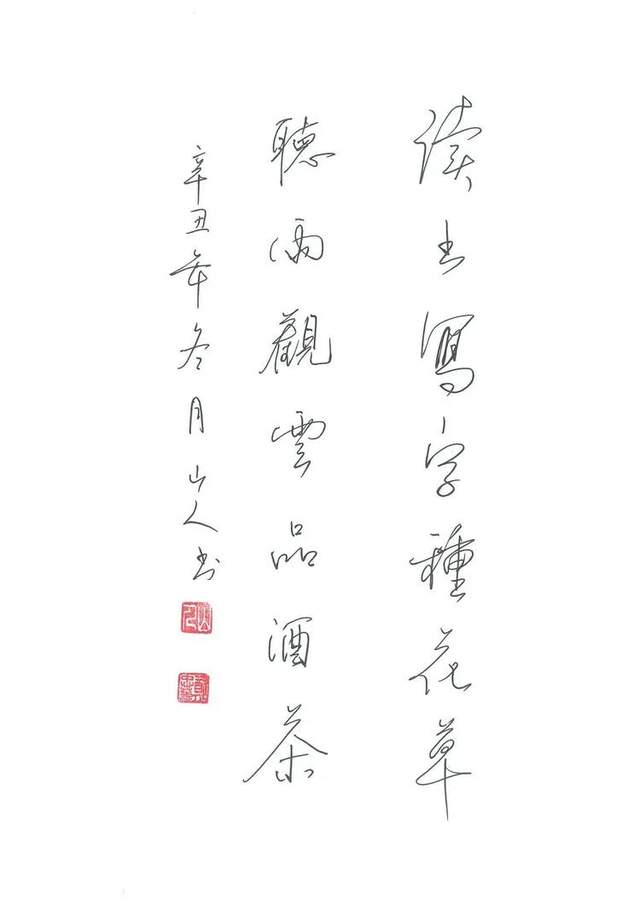 读书寫字種花草
聽雨觀雲品酒茶
辛丑年冬月山人书